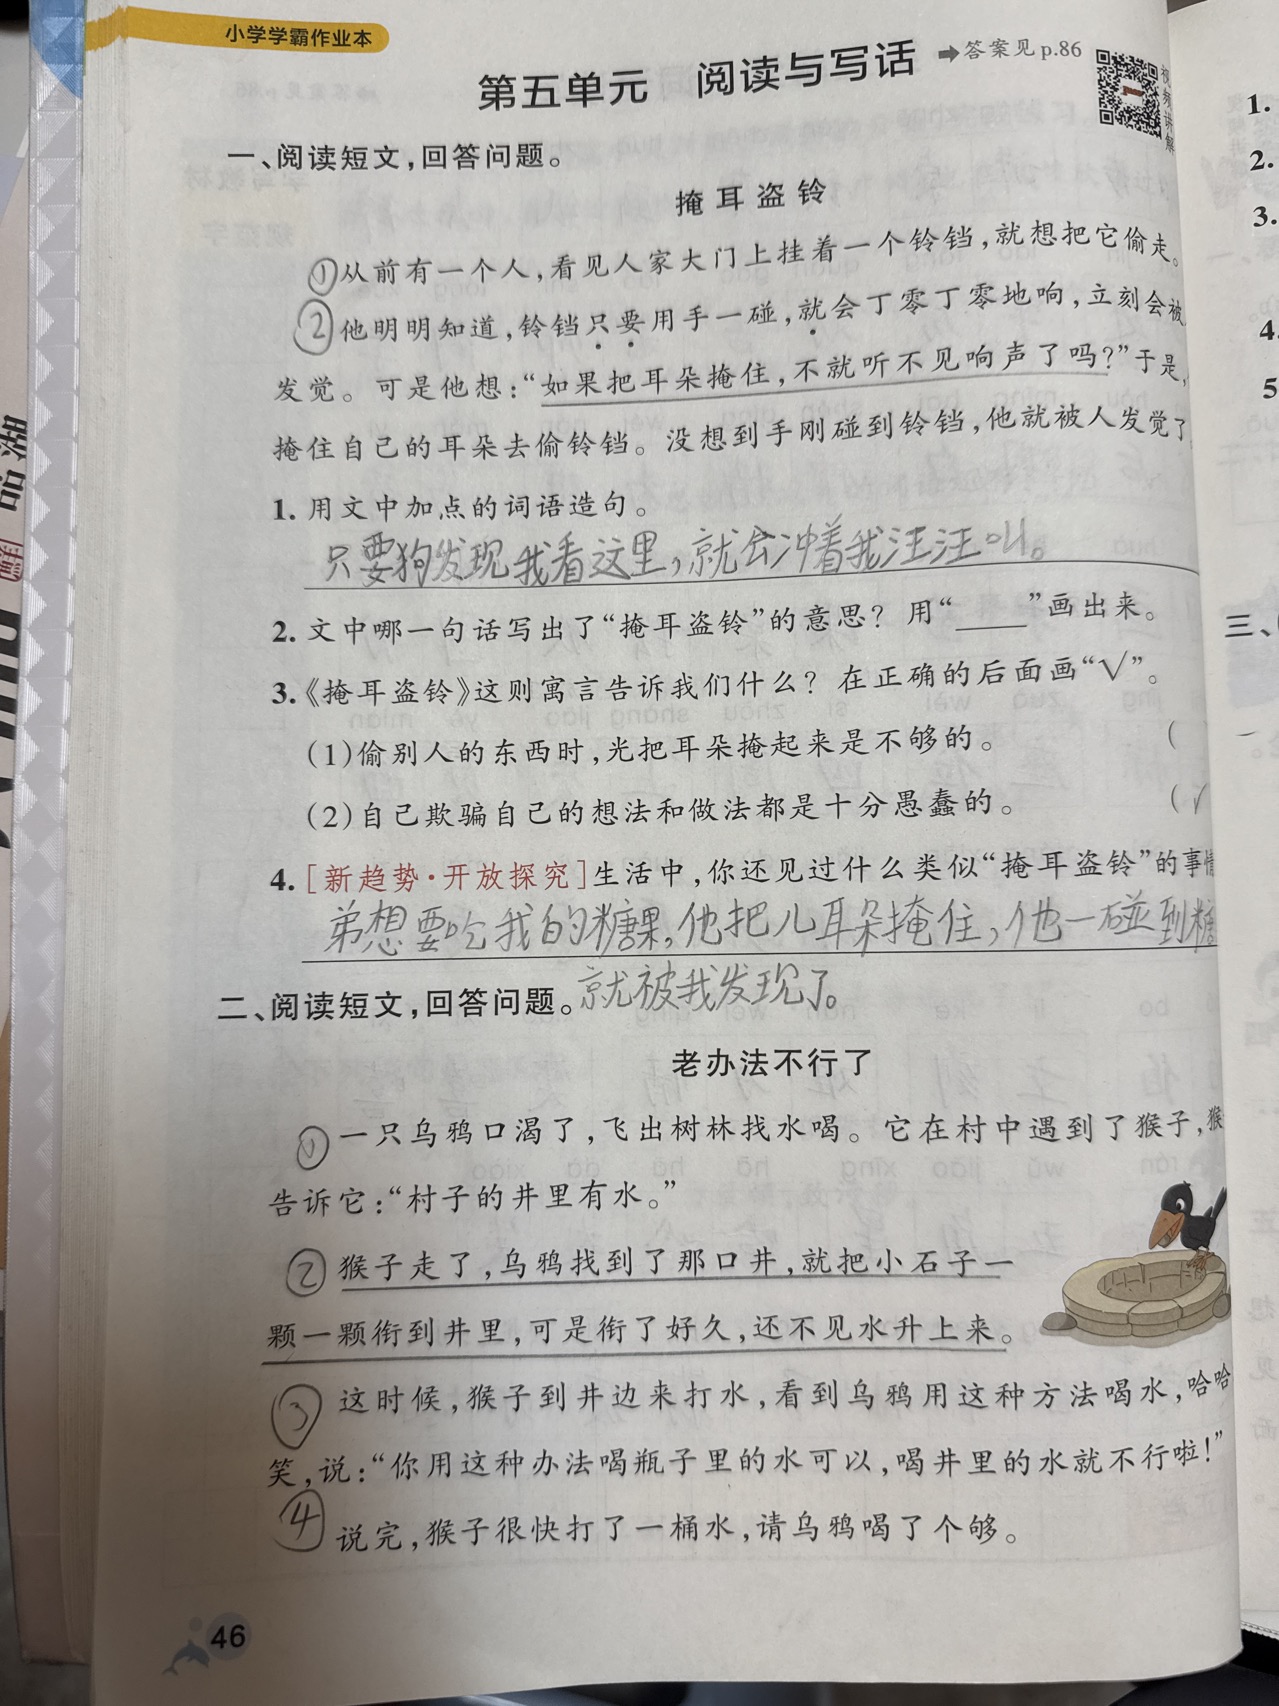 小学学霸作业本
第五单元 阅读与写话
➡答案见p.86
视频讲解
一、阅读短文,回答问题。
掩耳盗铃
①从前有一个人,看见人家大门上挂着一个铃铛,就想把它偷走。
②他明明知道,铃铛只要用手一碰,就会丁零丁零地响,立刻会被
发觉。可是他想:“如果把耳朵掩住,不就听不见响声了吗?”于是,
掩住自己的耳朵去偷铃铛。没想到手刚碰到铃铛,他就被人发觉了
1. 用文中加点的词语造句。
只要狗发现我看这里,就会冲着我汪汪叫。
2. 文中哪一句话写出了“掩耳盗铃”的意思?用“____”画出来。
3.《掩耳盗铃》这则寓言告诉我们什么?在正确的后面画“√”。
(1)偷别人的东西时,光把耳朵掩起来是不够的。 (
(2)自己欺骗自己的想法和做法都是十分愚蠢的。 (√
4. [新趋势·开放探究]生活中,你还见过什么类似“掩耳盗铃”的事情
弟想要吃我的糖果,他把儿耳朵掩住,他一碰到糖
就被我发现了。
二、阅读短文,回答问题。
老办法不行了
①一只乌鸦口渴了,飞出树林找水喝。它在村中遇到了猴子,猴
告诉它:“村子的井里有水。”
②猴子走了,乌鸦找到了那口井,就把小石子一
颗一颗衔到井里,可是衔了好久,还不见水升上来。
③这时候,猴子到井边来打水,看到乌鸦用这种方法喝水,哈哈
笑,说:“你用这种办法喝瓶子里的水可以,喝井里的水就不行啦!”
④说完,猴子很快打了一桶水,请乌鸦喝了个够。
46
1.
2.
3.
4.
5
三、